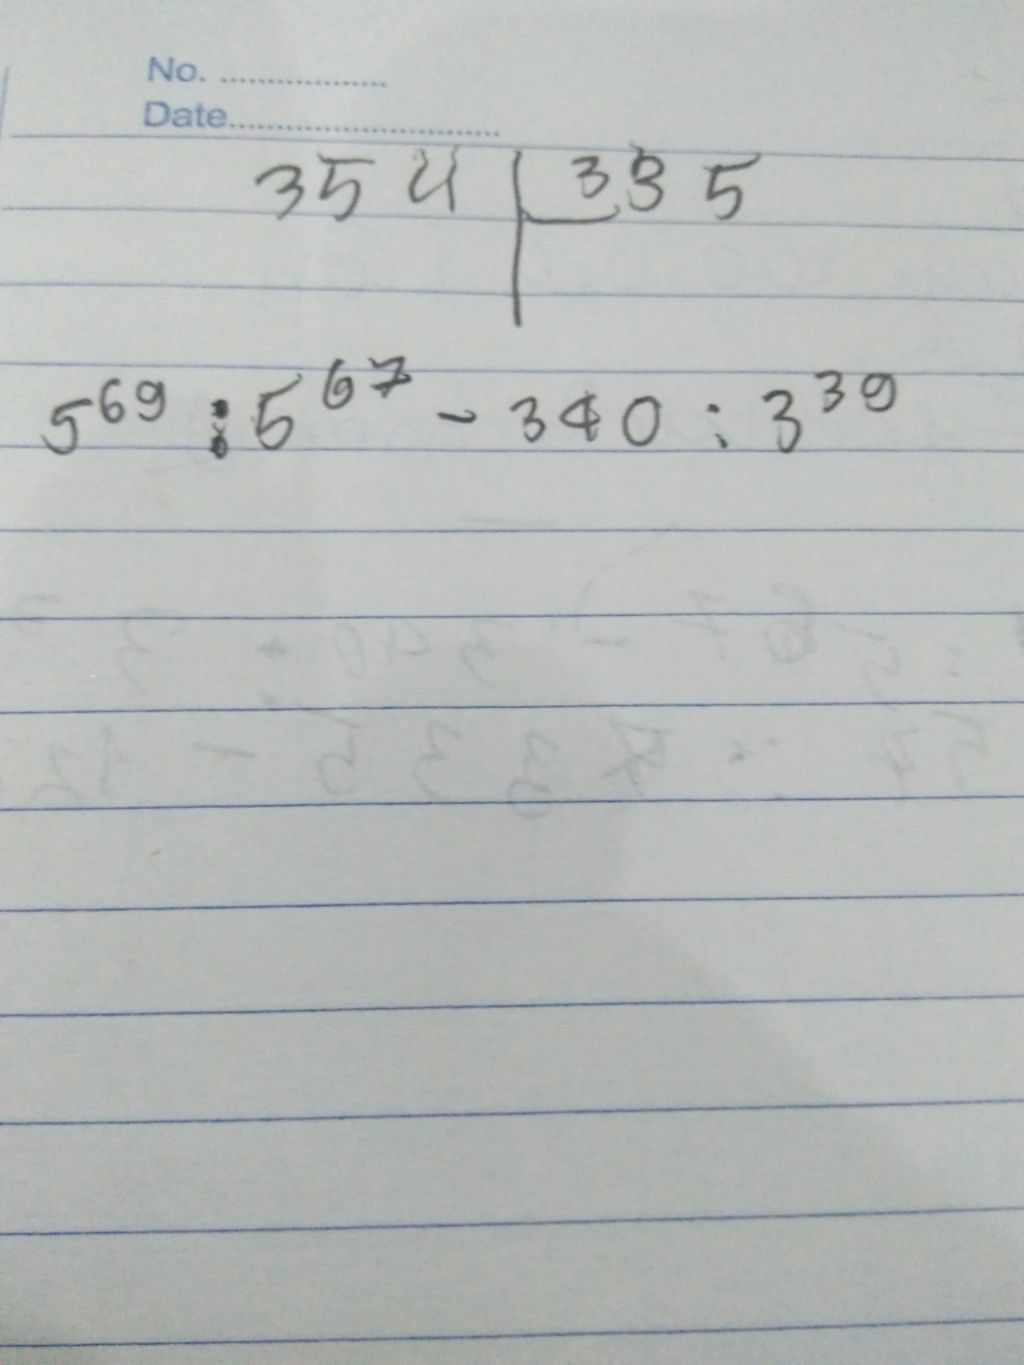 No. ................
Date.............................
354 | 335
5⁶⁹ : 5⁶⁷ - 340 : 3³⁹